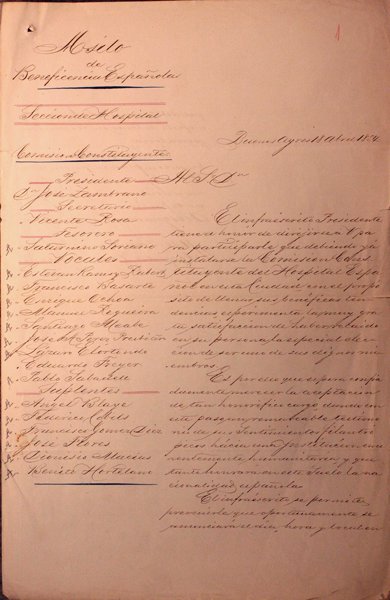 Asilo
de
Beneficencia Española
Seccion de Hospital
Comision Constituyente
Presidente
Dn José Zambrano
Secretario
Vicente Rosa
Tesorero
Saturnino Soriano
Vocales
Esteban Ramos
Francisco Basarte
Enrique Ochoa
Manuel Regueira
Santiago Alcaba
José Ma
Lázaro Elortondo
Eduardo
Pablo
Suplentes
Angel
Federico
Francisco Gomez Diez
José Flores
Dionisio Macias
Benito Hortelano
1
Buenos Ayres 18 Abril
M. S. Dn
El infrascrito Presidente
tiene el honor de dirijirse a V. pa
ra participarle que debiendo
instalarse la Comision Cons
tituyente del Hospital Espa
ñol en esta Ciudad con el propó
sito de llenar sus benéficas ten
dencias esperimenta la muy gra
ta satisfaccion de haber recaido
en su persona la especial elec
cion de ser uno de sus dignos mi
embros.
Es por eso que espera cumpli
damente merecer la aceptacion
de tan honorífico cargo dando en
este paso irrevocable testimo
nio de sus sentimientos filantro
picos hácia una institucion emi
nentemente humanitaria y que
tanto honrará en este suelo la na
cionalidad española.
El infrascrito se permite
prevenirle que oportunamente se
anunciará el dia, hora y local en